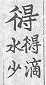 得
得滴
水少